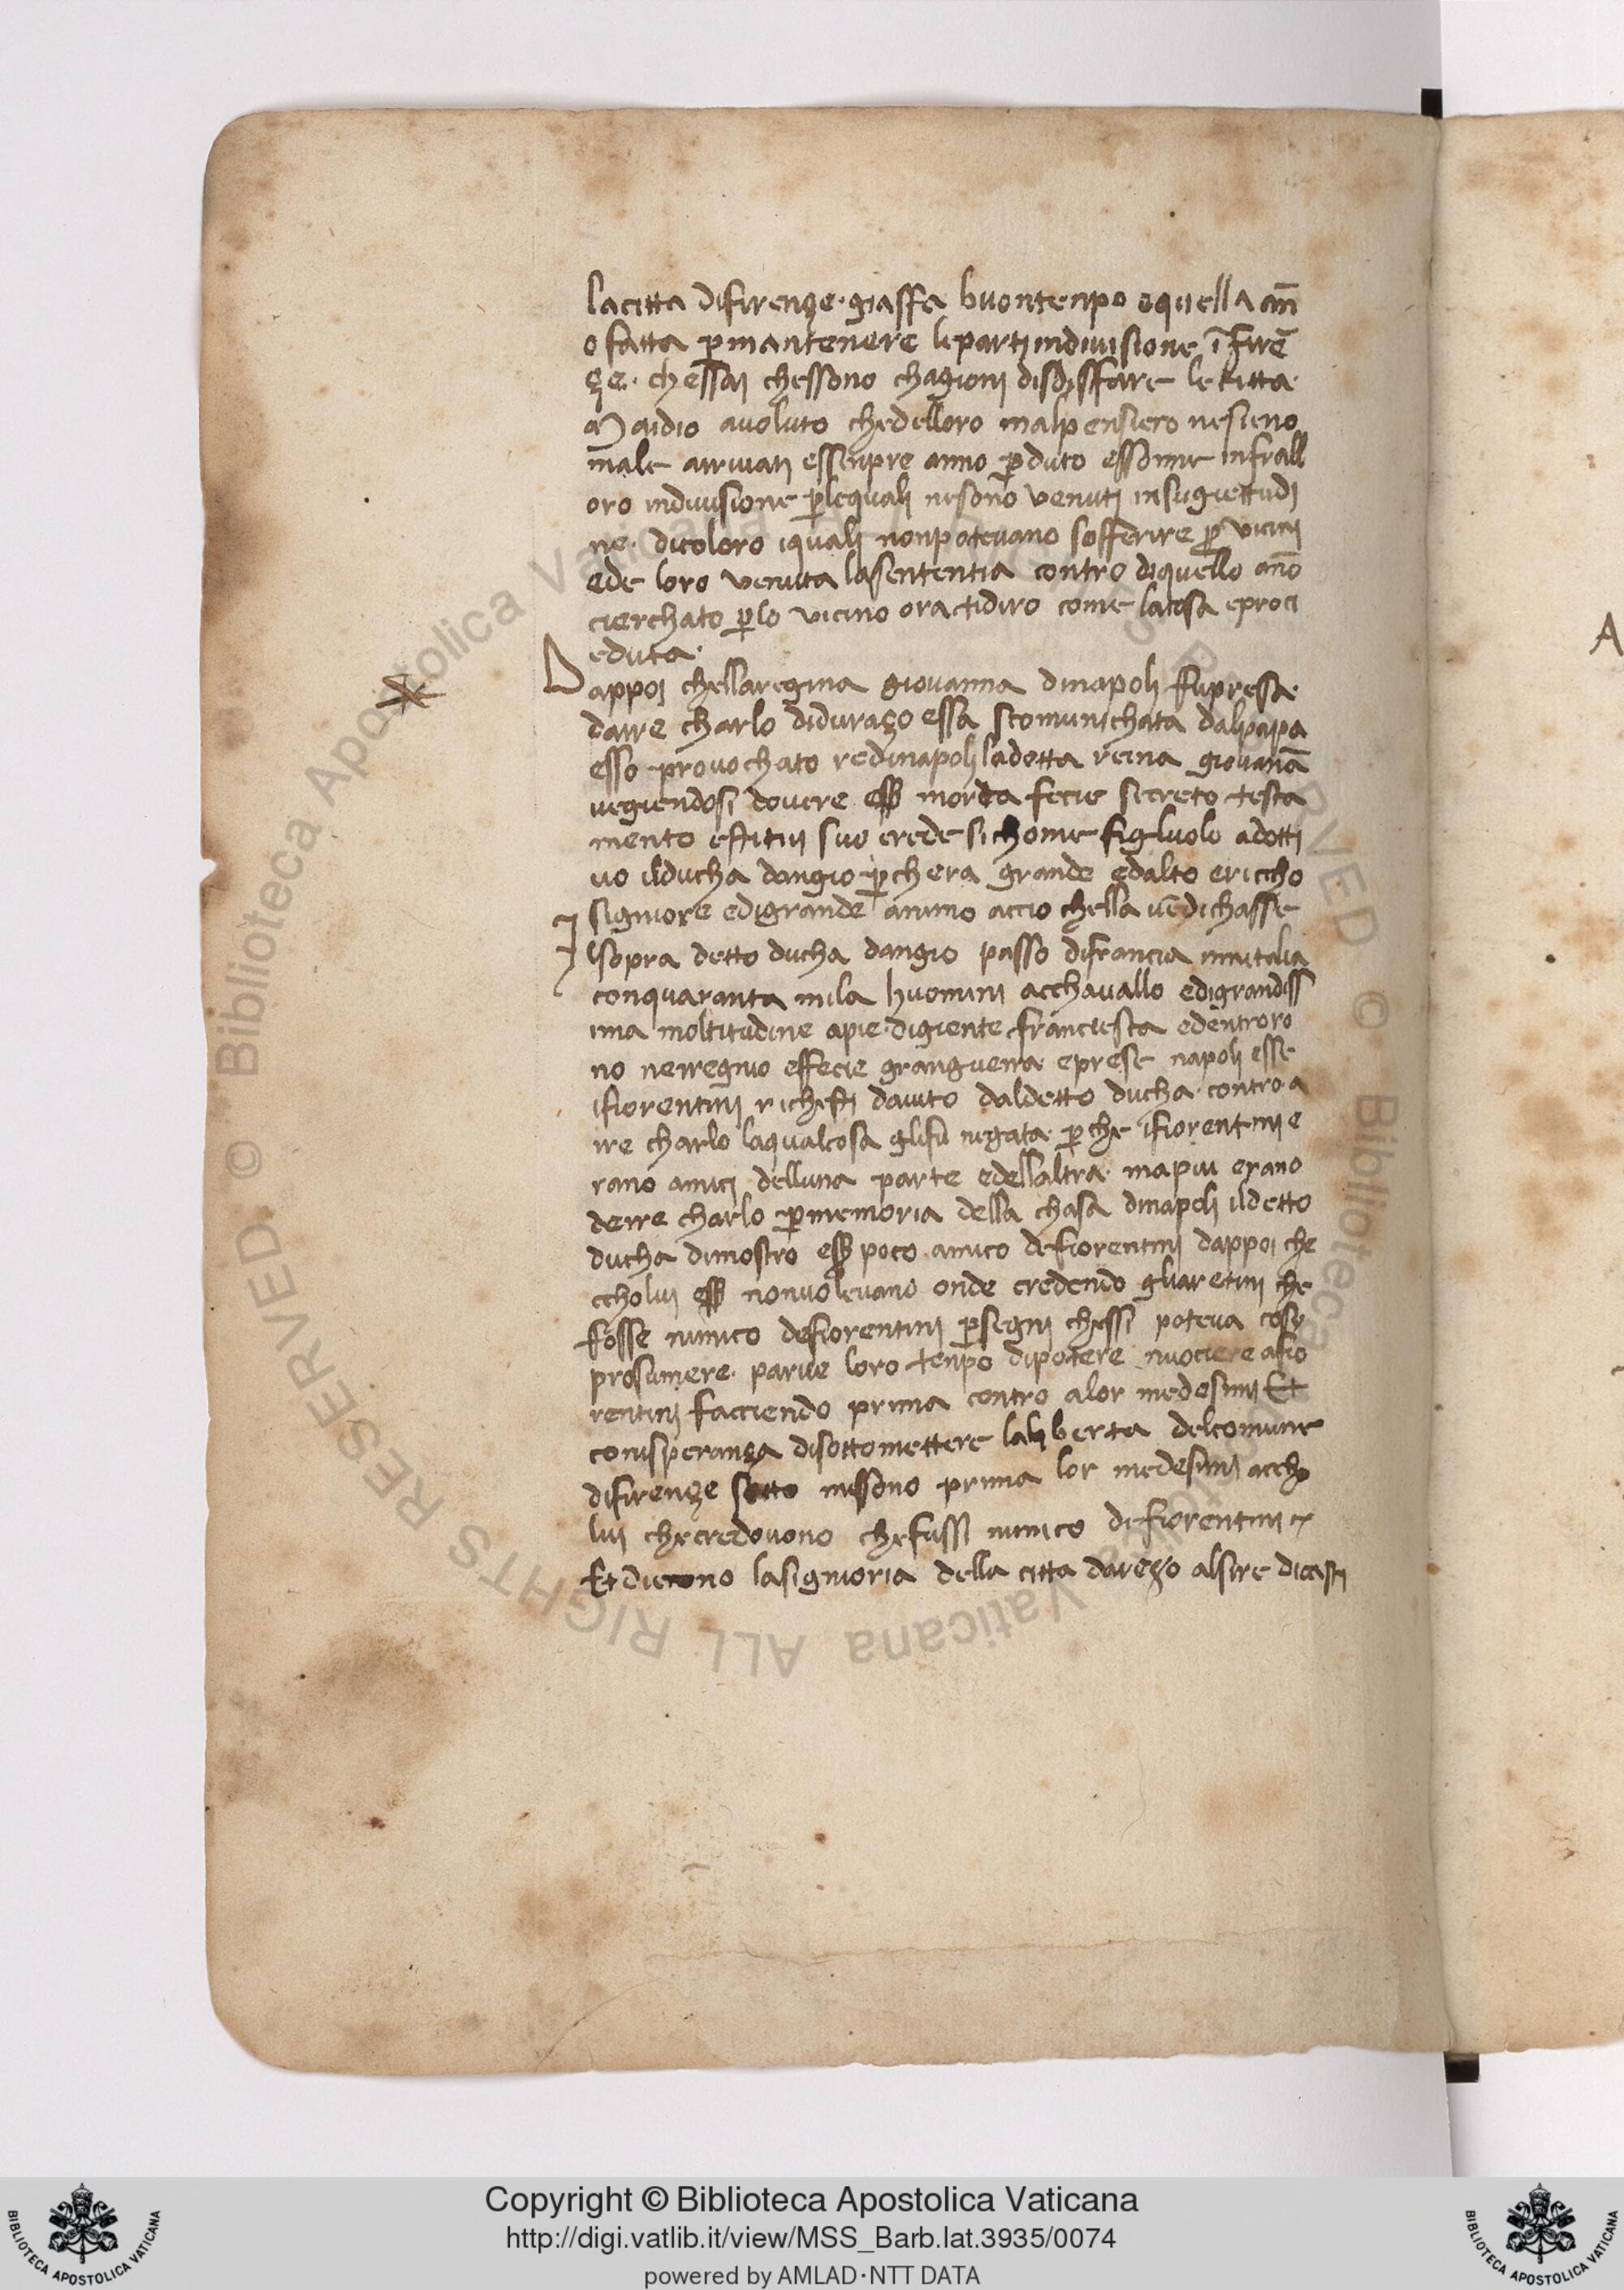 lacitta difirençe · giassa buontenpo equella añ
o fatta p̱mantenere lepartj indiuisione ī Firē
çe · chessaj chessono chagionj disdisffare le citta ·
Maidio auoluto chedelloro malpensiero nesieno
male arriuatj essenpre anno p̱duto essonne infrall
oro indiuisione p̱lequalj nesono venutj insugiettudj
ne · dicoloro iqualj nonpoteuano sofferire p̱ vicini
ede loro venuta lasententia contro diquello ano
cierchato p̱lo vicino oractidiro come lacosa eproci
eduta ·
Dappoj chellaregina giouanna dinapolj fupresa ·
darre charlo diduraço essa scomunichata dalpapa
esso prouochato redinapolj ladetta reina giouanā
uegiendosi douere eß̱ morta fecie secreto testa
mento effitui suo erede sichome figluolo adotti
uo ilducha dangio p̱chera grande edalto ericcho
signiore edigrande animo accio chella uēdichasse
Jlsopra detto ducha dangio passo difrancia innitalia
conquaranta mila huominj acchauallo edigrandiss
ima moltitudine apie · digiente franciesca edentroro
no nerregnio effecie granguerra eprese napolj esse
ifiorentinj richesti daiuto daldetto ducha · contro a
rre charlo laqualcosa glifu negata · p̱che ifiorentinj e
rano amicj delluna parte edellaltra · mapiu erano
derre charlo p̱memoria della chasa dinapolj ildetto
ducha dimostro eß̱ poco amico defiorentinj dappoi che
ccholuj eß̱ nonuoleuano onde credendo gliaretinj che
fosse nimico defiorentinj p̱segni chessi poteua cosy
prosumere · parue loro tenpo dipotere nuociere afio
rentinj facciendo prima contro alor medesimj Et
conisperança disottomettere laliberta delcomune
difirençe sotto missono prima lor medesimj accho
luj checredouono chefussi nimico defiorentinj
Et dierono lasignioria della citta dareço alsire dicasi
Copyright © Biblioteca Apostolica Vaticana
http://digi.vatlib.it/view/MSS_Barb.lat.3935/0074
powered by AMLAD·NTT DATA